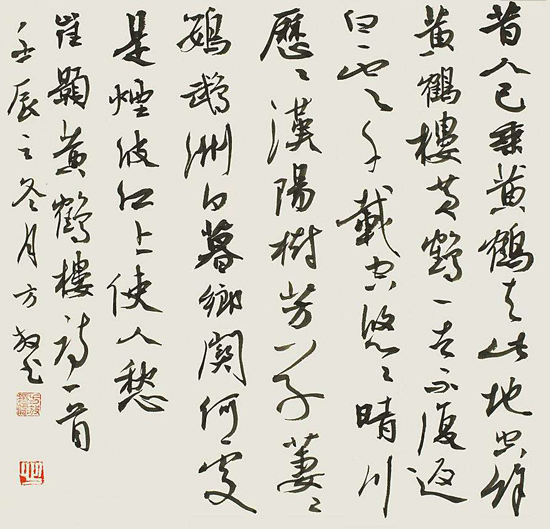 昔人已乘黄鶴去此地空餘
黄鶴樓黄鶴一去不復返
白云千載空悠〻晴川
歷〻漢陽樹芳草萋〻
鸚鵡洲日暮鄉關何處
是煙波江上使人愁
崔顥黄鶴樓詩一首
壬辰之冬月方